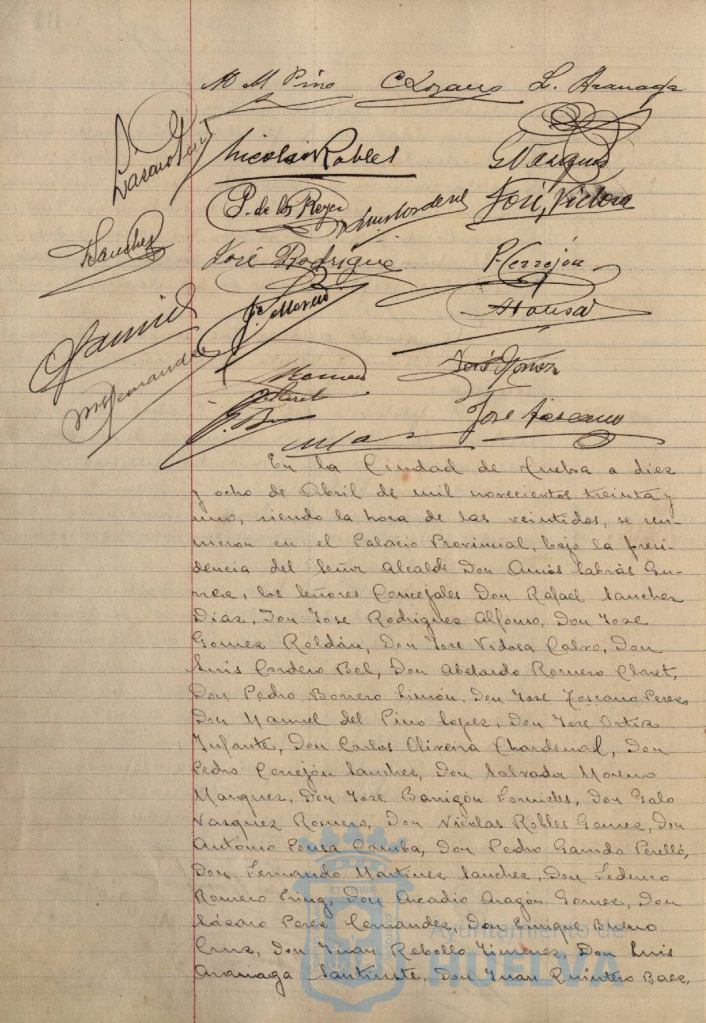 M M Pino C Lozano L. Aranaga
Lazaro Perez Nicolas Robles G Vazquez
P. de los Reyes Luis Cordero José Vidosa
Sanchez
José Rodriguez P. Cerrejón
Moreno A Pousa
Garrido
M Fernandez
Romero José Gómez
Claret
José Toscano
En la Ciudad de Huelva a diez
y ocho de Abril de mil novecientos treinta y
uno, siendo la hora de las veintidos, se reu-
nieron en el Palacio Provincial, bajo la presi-
dencia del Señor Alcalde Don Amós Sabrás Gu-
rrea, los Señores Concejales Don Rafael Sanchez
Diaz, Don Jose Rodriguez Alfonso, Don Jose
Gomez Roldán, Don Jose Vidosa Calvo, Don
Luis Cordero Bel, Don Abelardo Romero Claret,
Don Pedro Borrero Limón, Don Jose Toscano Perez,
Don Manuel del Pino Lopez, Don Jose Ortiz
Infante, Don Carlos Oliveira Chardenal, Don
Pedro Cerrejón Sanchez, Don Salvador Moreno
Marquez, Don Jose Barrigón Fornieles, Don Galo
Vazquez Romero, Don Nicolas Robles Gomez, Don
Antonio Pousa Camba, Don Pedro Garrido Perelló,
Don Fernando Martinez Sanchez, Don Federico
Romero Don Arcadio Aragón Gomez, Don
Lázaro Perez Fernandez, Don Enrique Bueno
Cruz, Don Juan Rebollo Jimenez, Don Luis
Aranaga Santiuste, Don Juan Quintero Baez,
Ayuntamiento de
HUELVA